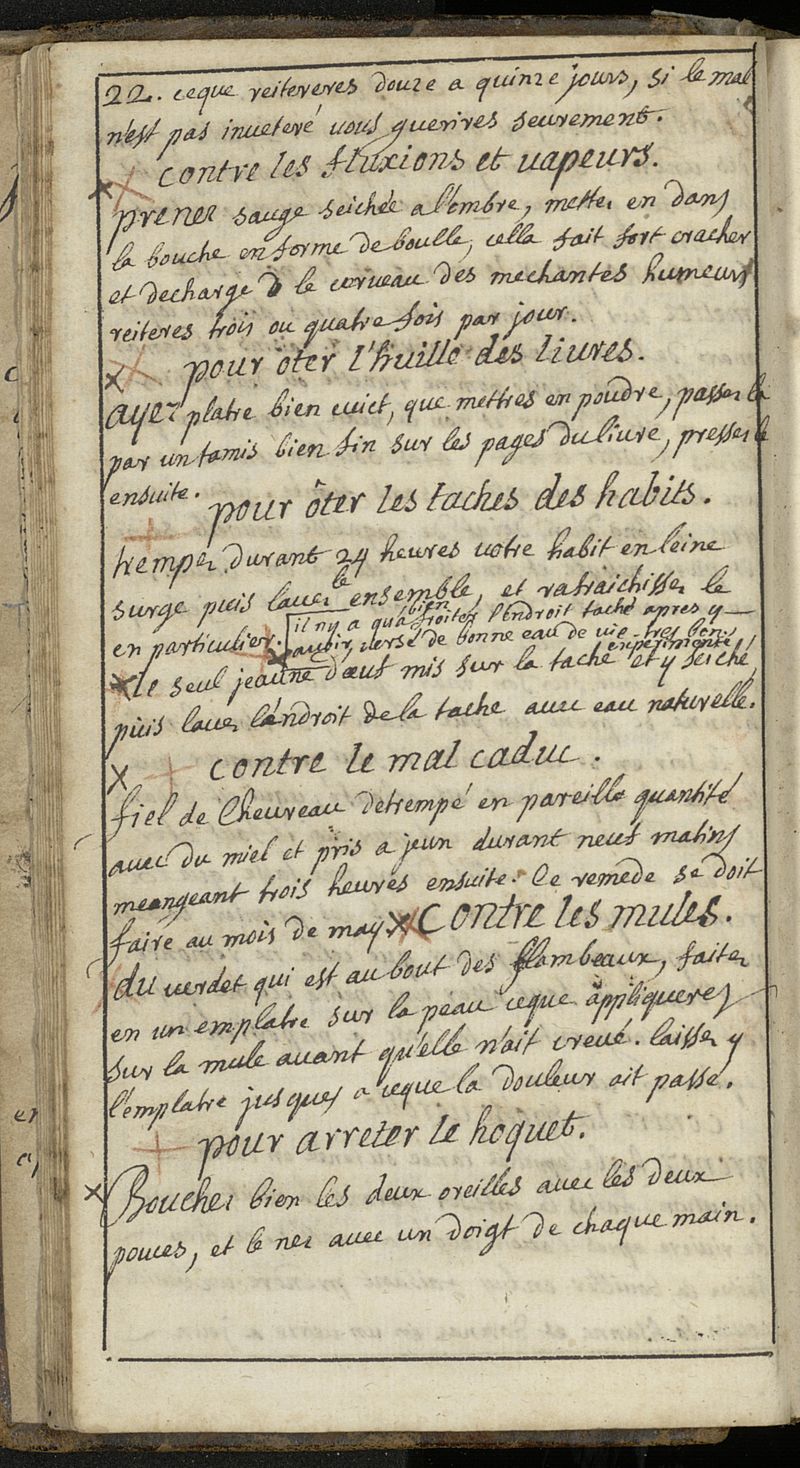 22. ceque reitereres douze a quinze jours, si le mal
n'est pas inueteré uous guerires seurement.
contre les fluxions et uapeurs.
prenez sauge seichée a l'ombre, mettez en dans
la bouche en forme de boulle, cella fait fort cracher
et decharge le cerueau des mechantes humeurs
reiteres trois ou quatre fois par jour.
pour oter l'huille des liures.
ayez platre bien cuict, que mettres en poudre, passez la
par un tamis bien fin sur les pages du liure, pressez le
ensuite.
pour ôter les taches des habits.
trempez durant 24 heures uotre habit en leine
surge puis lauez le ensemble, et rafraichissez le
en particulier. il ny a qu'a bien froiter l'endroit taché apres y
auoir uersé de bonne eau de uie tres bon.
experimenté
le seul jeaune d'œuf mis sur la tache et y seiché
puis lauez l'androit de la tache auec eau naturelle.
contre le mal caduc.
fiel de Cheureau detrempé en pareille quantité
auec du miel et pris a jeun durant neuf matins
meangeant trois heures ensuite. Ce remede se doit
faire au mois de may. Contre les mules.
du uerdet qui est au bout des flambeaux, faitez
en un emplatre sur la peau ceque appliqueres
sur la mule auant qu'elle n'ait creué. laissez y
l'emplatre jusques a ceque la douleur ait passé.
pour arreter le hoquet.
Bouchez bien les deux oreilles auec les deux
pouces, et le nez auec un doigt de chaque main.